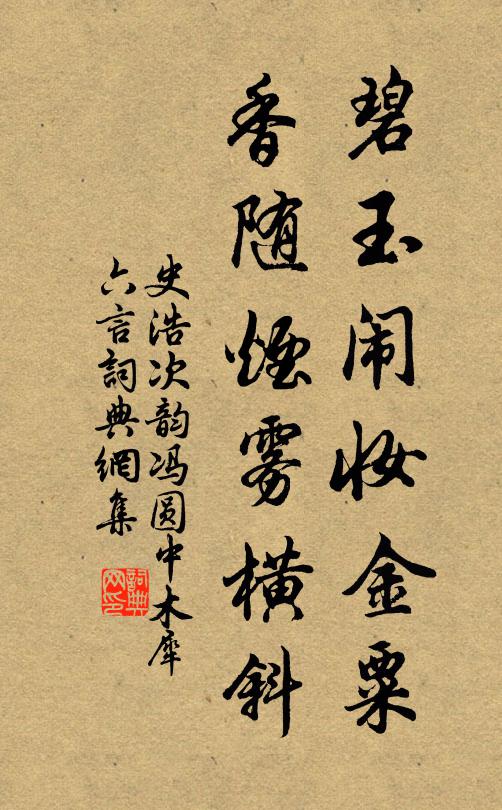 碧玉闹妆金粟
香随烟雾横斜
史浩次韵冯圆中木犀
六言詞典網集
詞典
网印